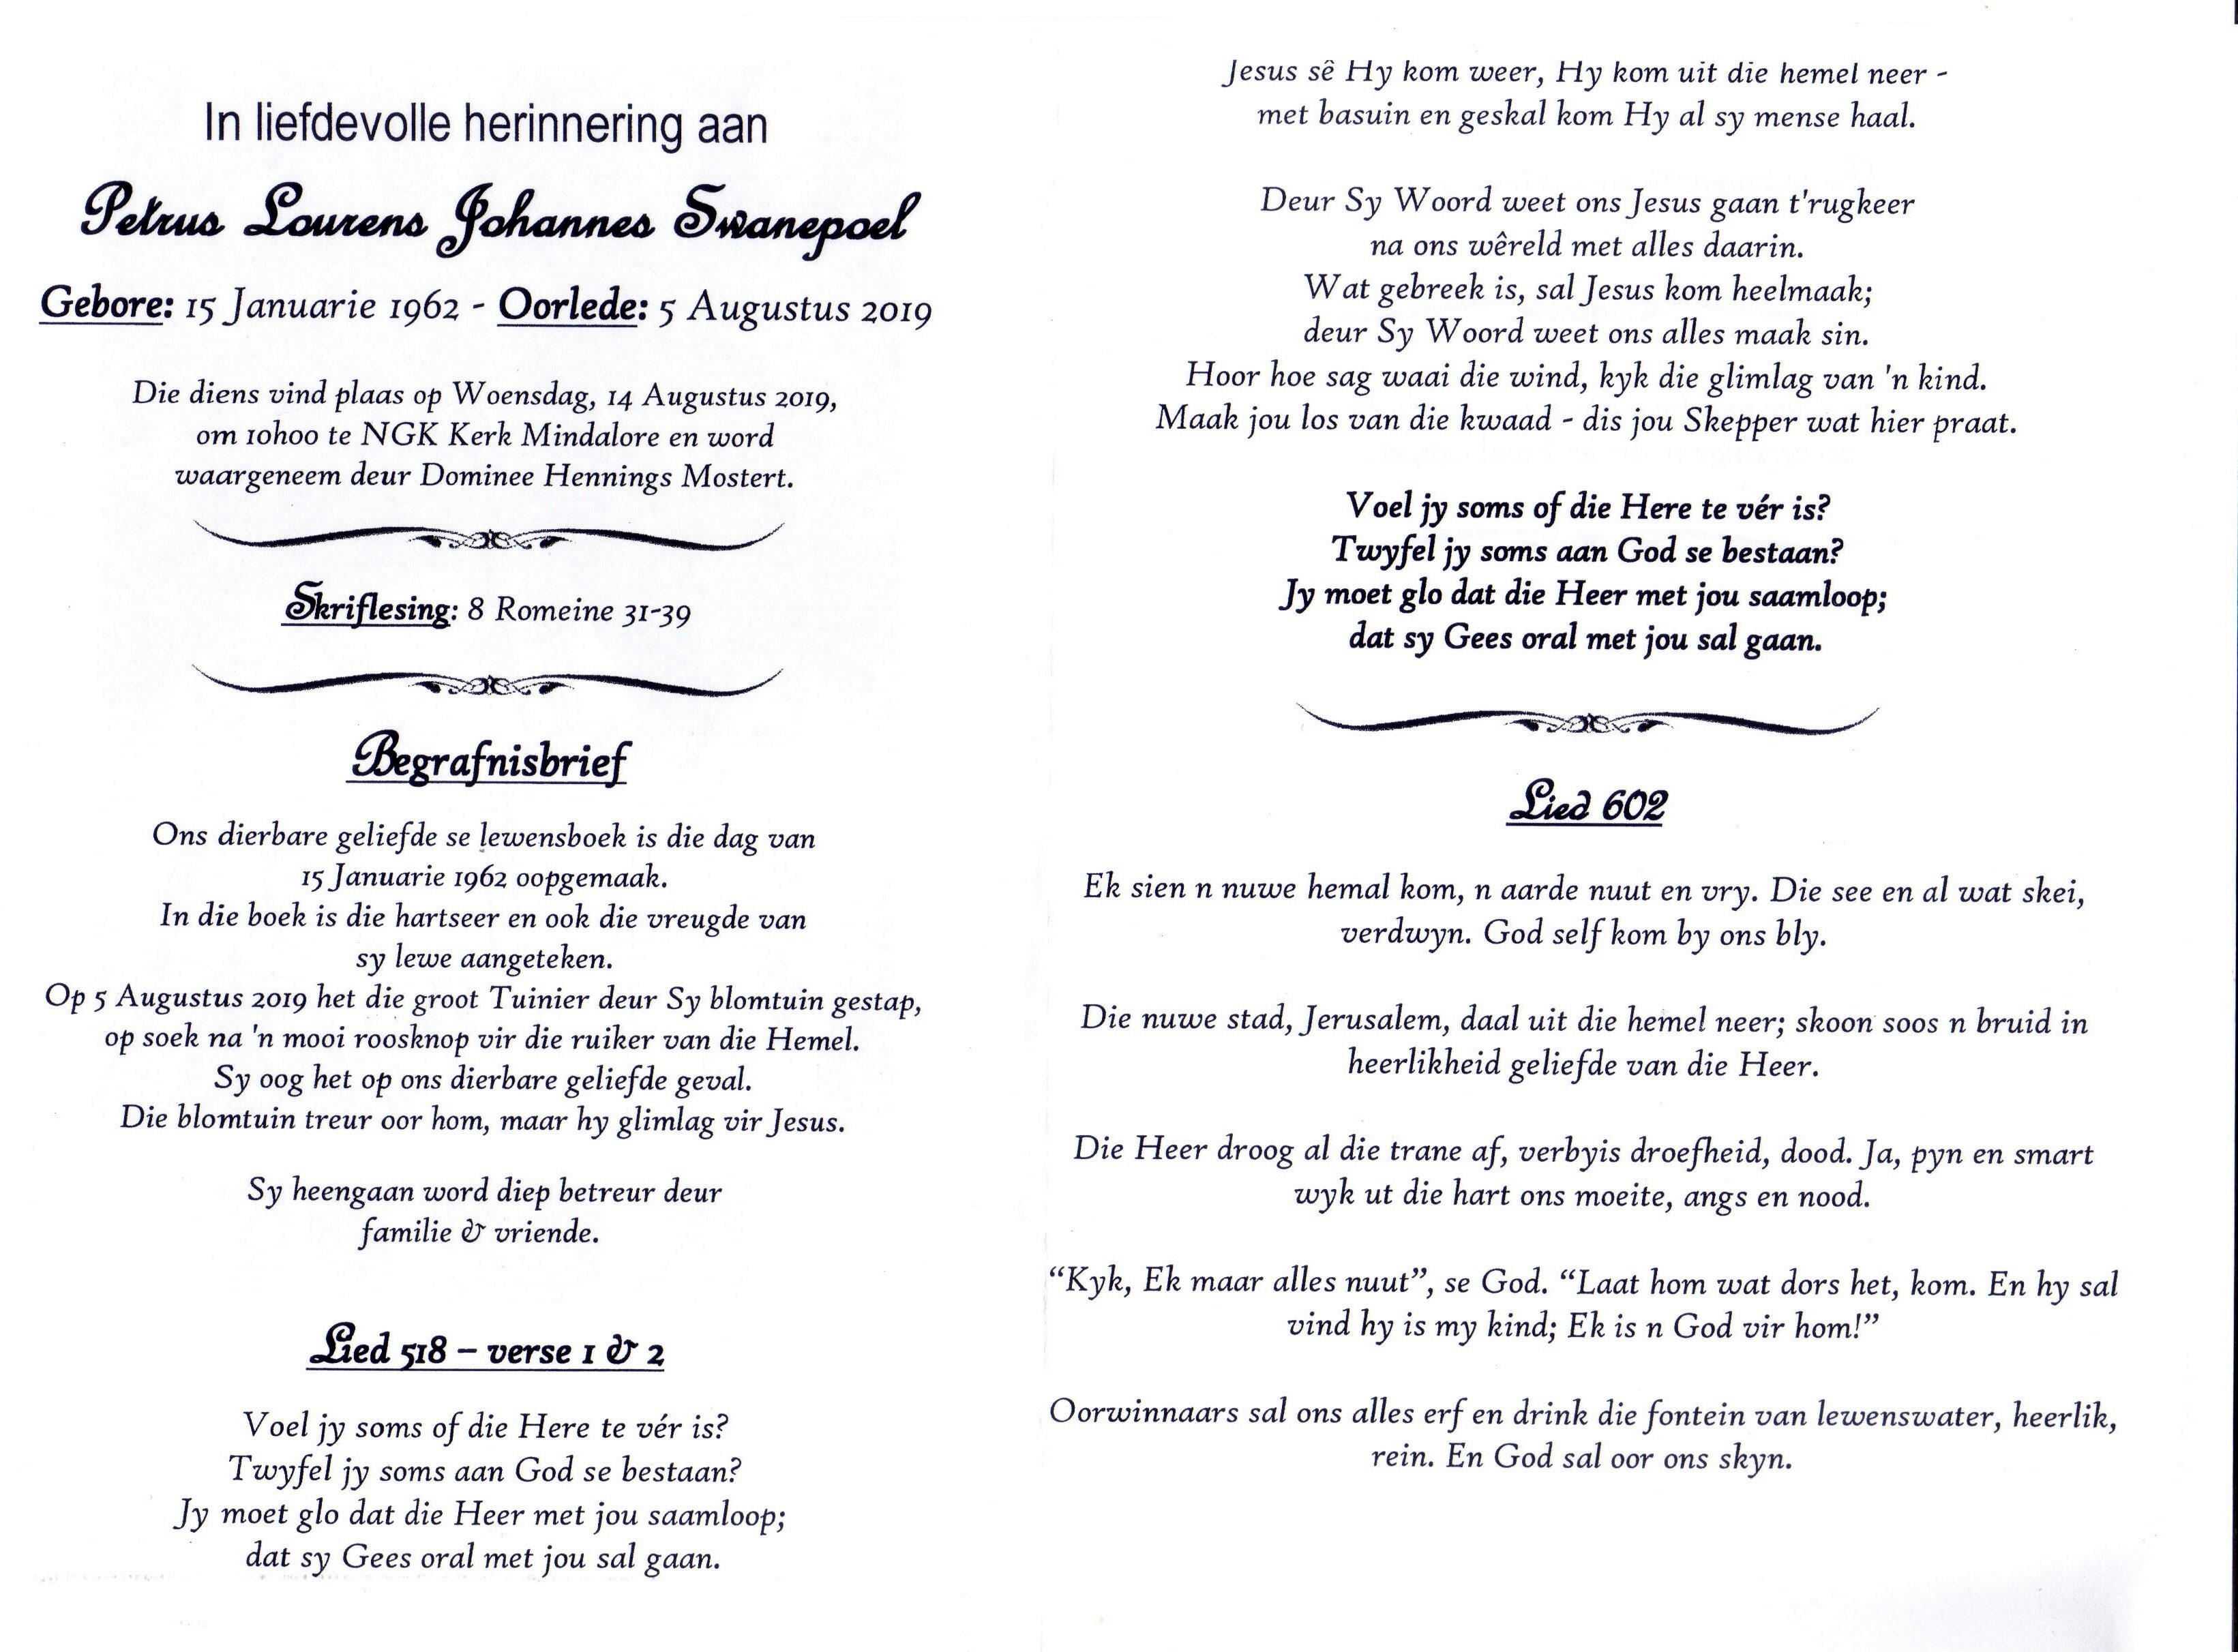 In liefdevolle herinnering aan
Petrus Lourens Johannes Swanepoel
Gebore: 15 Januarie 1962 - Oorlede: 5 Augustus 2019
Die diens vind plaas op Woensdag, 14 Augustus 2019,
om 10h00 te NGK Kerk Mindalore en word
waargeneem deur Dominee Hennings Mostert.
Skriflesing: 8 Romeine 31-39
Begrafnisbrief
Ons dierbare geliefde se lewensboek is die dag van
15 Januarie 1962 oopgemaak.
In die boek is die hartseer en ook die vreugde van
sy lewe aangeteken.
Op 5 Augustus 2019 het die groot Tuinier deur Sy blomtuin gestap,
op soek na 'n mooi roosknop vir die ruiker van die Hemel.
Sy oog het op ons dierbare geliefde geval.
Die blomtuin treur oor hom, maar hy glimlag vir Jesus.
Sy heengaan word diep betreur deur
familie & vriende.
Lied 518 – verse 1 & 2
Voel jy soms of die Here te vér is?
Twyfel jy soms aan God se bestaan?
Jy moet glo dat die Heer met jou saamloop;
dat sy Gees oral met jou sal gaan.
Jesus sê Hy kom weer, Hy kom uit die hemel neer -
met basuin en geskal kom Hy al sy mense haal.
Deur Sy Woord weet ons Jesus gaan t'rugkeer
na ons wêreld met alles daarin.
Wat gebreek is, sal Jesus kom heelmaak;
deur Sy Woord weet ons alles maak sin.
Hoor hoe sag waai die wind, kyk die glimlag van 'n kind.
Maak jou los van die kwaad - dis jou Skepper wat hier praat.
Voel jy soms of die Here te vér is?
Twyfel jy soms aan God se bestaan?
Jy moet glo dat die Heer met jou saamloop;
dat sy Gees oral met jou sal gaan.
Lied 602
Ek sien n nuwe hemal kom, n aarde nuut en vry. Die see en al wat skei,
verdwyn. God self kom by ons bly.
Die nuwe stad, Jerusalem, daal uit die hemel neer; skoon soos n bruid in
heerlikheid geliefde van die Heer.
Die Heer droog al die trane af, verbyis droefheid, dood. Ja, pyn en smart
wyk ut die hart ons moeite, angs en nood.
“Kyk, Ek maar alles nuut”, se God. “Laat hom wat dors het, kom. En hy sal
vind hy is my kind; Ek is n God vir hom!”
Oorwinnaars sal ons alles erf en drink die fontein van lewenswater, heerlik,
rein. En God sal oor ons skyn.